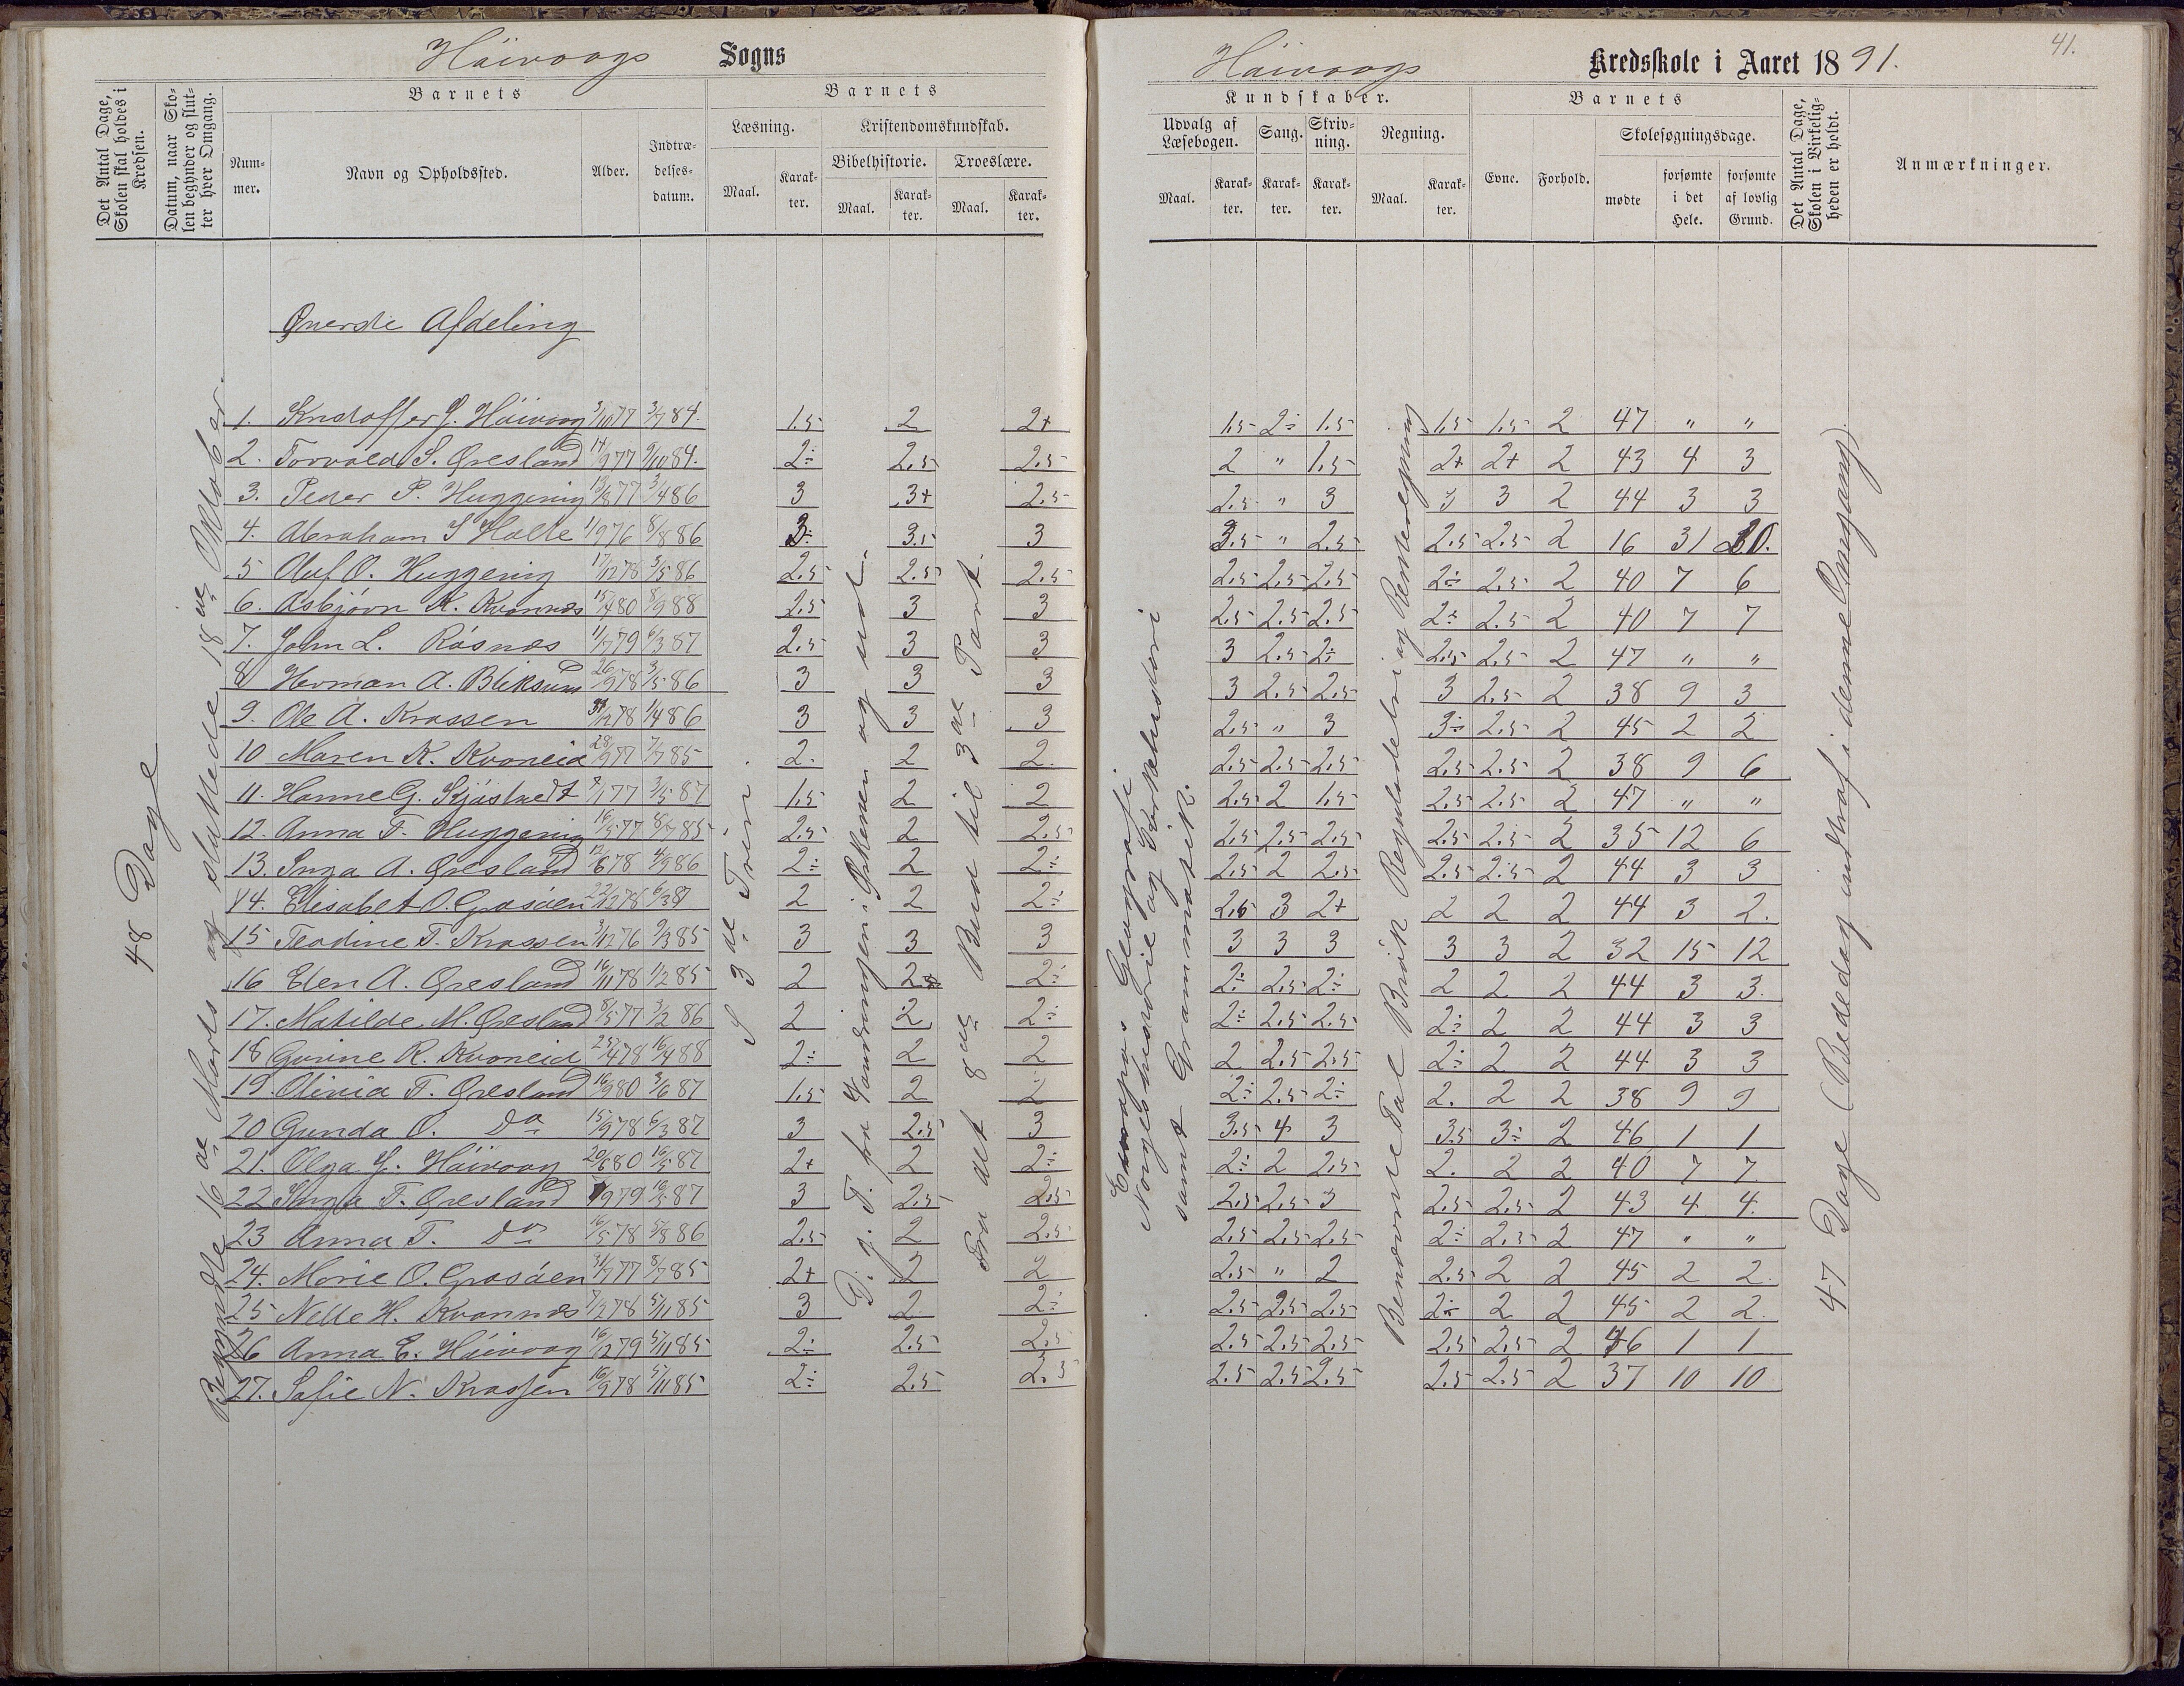 Høivaags Sogns
Det Antal Dage, Skolen skal holdes i Kredsen.
Datum, naar Skolen begynder og slutter hver Omgang.
Barnets
Nummer.
Navn og Opholdssted.
Alder.
Indtrædelsesdatum.
Barnets
Læsning.
Kristendomskundskab.
Bibelhistorie.
Troeslære.
Maal.
Karakter.
Maal.
Karakter.
Maal.
Karakter.
Øverste Afdeling
48 Dage
Begyndte 16de Marts og sluttede 18de Oktober.
I 3de Trin.
D. g. T. fra Vandringen i Ørkenen og ud.
Fra det 8de Bud til 3de Part.
1. Kristoffer J. Høivaag 3/10 77 3/7 84. 1.5 2 2+
2. Torvald S. Øresland 14/9 77 9/10 84. 2÷ 2.5 2.5
3. Peder P. Huggenig 13/8 77 3/4 86 3 3+ 2.5
4. Abraham S Halle 1/9 76 8/8 86 3÷ 3.5 3
5 Aluf O. Huggenig 17/12 78 3/5 86 2.5 2.5 2.5
6. Asbjørn K. Kvannes 15/4 80 8/9 88 2.5 3 3
7. John L. Røsnes 11/7 79 6/3 87 2.5 3 3
8 Herman A. Bliksund 26/9 78 3/5 86 3 3 3
9. Ole A. Krossen 31/12 78 1/4 86 3 3 3
10 Maren K. Kvoneid 28/9 77 7/7 85 2. 2 2.
11. Hanne G. Skjøstvedt 8/1 77 3/5 87 1.5 2 2
12. Anna F. Huggenig 16/5 77 8/7 85 2.5 2 2.5
13. Inga A. Øresland 12/6 78 4/9 86 2÷ 2 2÷
14. Elisabet O. Grosåen 22/12 78 6/3 87 2 2 2÷
15 Teodine T. Krossen 3/12 76 9/3 85 3 3 3
16 Elen A. Øresland 16/11 78 1/2 85 2 2 2÷
17. Matilde M. Øresland 8/5 77 3/2 86 2 2 2÷
18 Gurine R. Kvoneid 25/4 78 16/4 88 2÷ 2 2
19 Olivia T. Øresland 16/9 80 3/6 87 1.5 2 2
20 Gunda O. Do 15/9 78 6/3 87 3 2.5 3
21. Olga J. Høivaag 20/6 80 16/5 87 2+ 2 2÷
22 Inga T. Øresland 1/9 79 16/5 87 3 2.5 2.5
23 Anna T. Do 16/5 78 5/8 86 2.5 2 2.5
24. Marie O. Grosåen 31/7 77 8/7 85 2+ 2 2
25 Nelle H. Kvannes 7/3 78 5/11 85 3 2 2÷
26 Anna E. Høivaag 16/12 79 5/11 85 2÷ 2.5 2.5
27. Sofie N. Krossen 16/9 78 5/11 85 2÷ 2.5 2.5
41.
Høivaags Kredsskole i Aaret 1891.
Kundskaber.
Udvalg af Læsebogen.
Sang.
Skrivning.
Regning.
Maal.
Karakter.
Karakter.
Karakter.
Maal.
Karakter.
Barnets
Evne.
Forhold.
Skolesøgningsdage.
mødte
forsømte i det Hele.
forsømte af lovlig Grund.
Det Antal Dage, Skolen i Virkeligheden er holdt.
Anmærkninger.
Europas Geografi
Norgeshistorie og Kirkehistorie
samt Grammatik.
Benævnte Tal Brøk Reguladetri og Renteregning
47 Dage (Bededag indtraf i denne Omgang).
1.5 2÷ 1.5 1.5 1.5 2 47 " "
2 " 1.5 2+ 2+ 2 43 4 3
2.5 " 3 3 3 2 44 3 3
3.5 " 2.5 2.5 2.5 2 16 31 30.
2.5 2.5 2.5 2÷ 2.5 2 40 7 6
2.5 2.5 2.5 2÷ 2.5 2 40 7 7
3 2.5 2÷ 2.5 2.5 2 47 " "
3 2.5 2.5 3 2.5 2 38 9 3
2.5 " 3 3÷ 2.5 2 45 2 2
2.5 2.5 2.5 2.5 2.5 2 38 9 6
2.5 2 1.5 2.5 2.5 2 47 " "
2.5 2.5 2.5 2.5 2.5 2 35 12 6
2.5 2 2.5 2.5 2.5 2 44 3 3
2.5 3 2+ 2 2 2 44 3 2.
3 3 3 3 3 2 32 15 12
2÷ 2.5 2÷ 2 2 2 44 3 3.
2÷ 2.5 2.5 2÷ 2 2 44 3 3
2 2.5 2.5 2÷ 2 2 44 3 3
2÷ 2.5 2÷ 2. 2 2 38 9 9
3.5 4 3 3.5 3÷ 2 46 1 1
2÷ 2 2.5 2. 2 2 40 7 7.
2.5 2.5 3 2.5 2.5 2 43 4 4.
2.5 2.5 2.5 2÷ 2.5 2 47 " "
2.5 " 2 2.5 2 2 45 2 2.
2.5 2.5 2.5 2÷ 2 2 45 2 2.
2.5 2.5 2.5 2.5 2.5 2 46 1 1
2.5 2.5 2.5 2.5 2.5 2 37 10 10